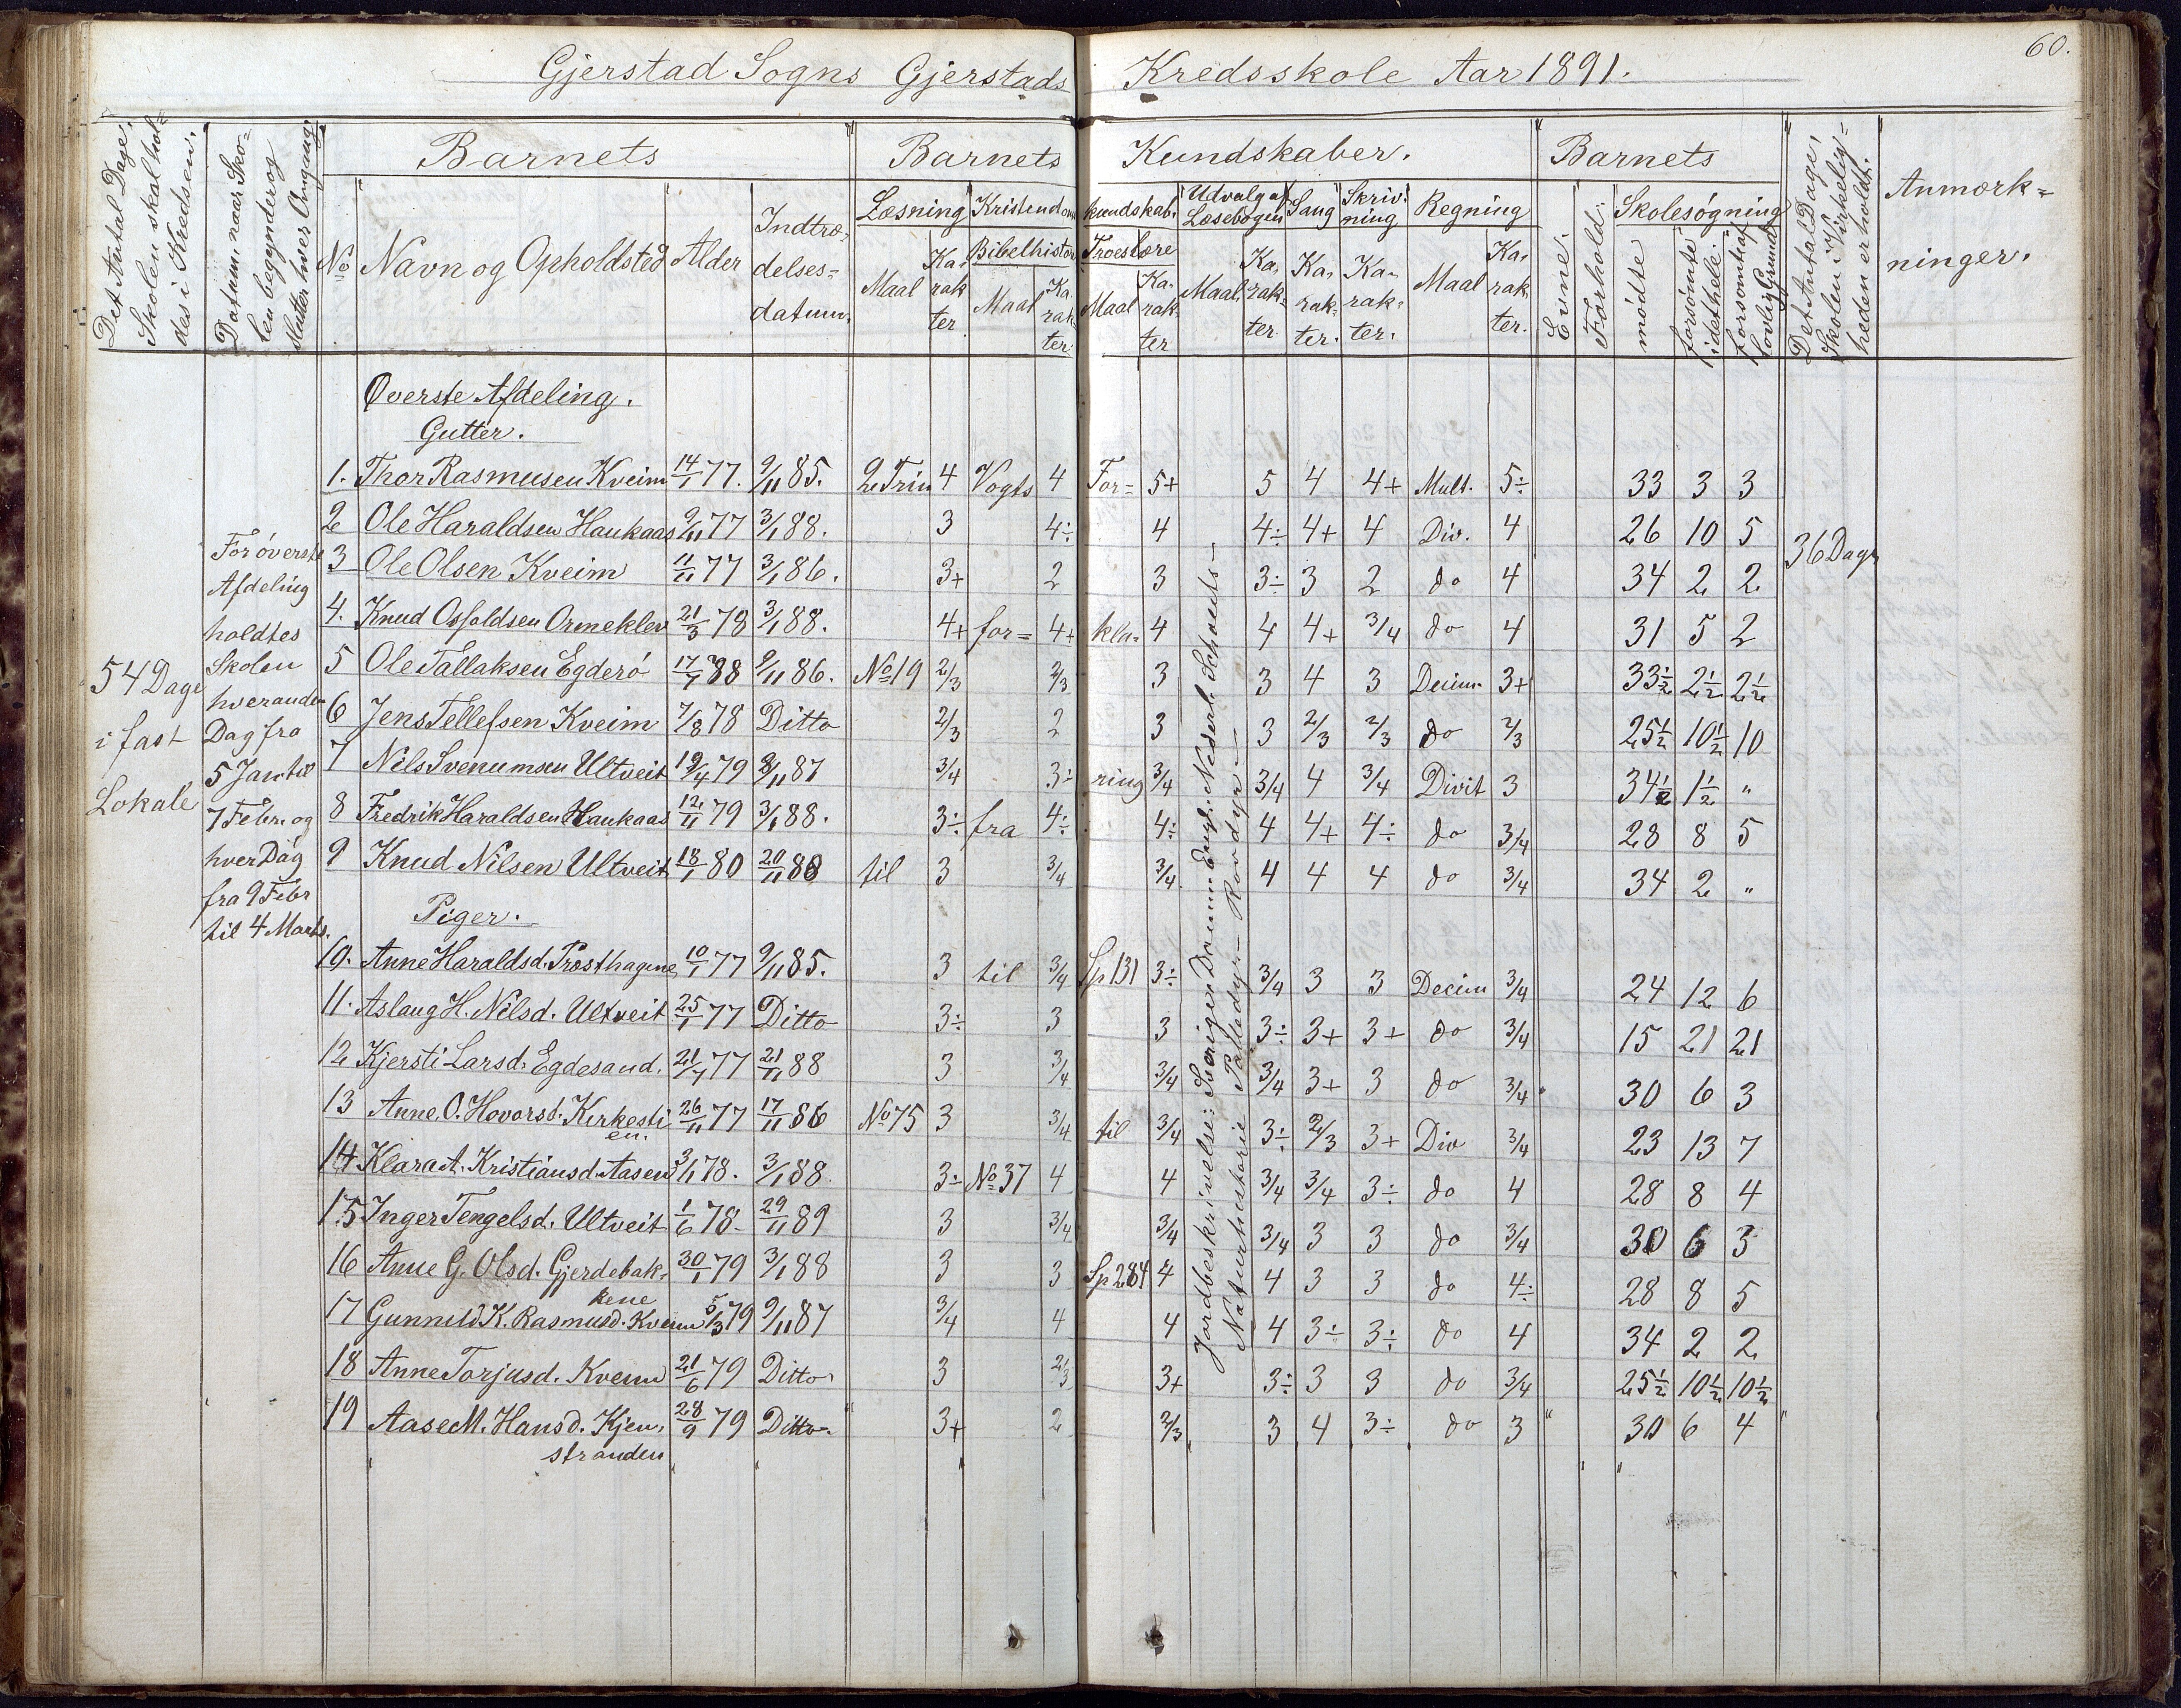 60.
Gjerstad Sogns Gjerstads Kredsskole Aar 1891.
Det Antal Dage, Skolen skal holdes i Kredsen.
Datum, naar Skolen begynder og slutter hver Omgang
Barnets
Barnets Kundskaber.
Barnets
Det Antal Dage, Skolen i Virkeligheden er holdt.
Anmærkninger.
No
Navn og Opholdsted
Alder
Indtrædelsesdatum.
Læsning
Kristendomskundskab.
Udvalg af Læsebogen
Sang
Skrivning
Regning
Evne.
Forhold.
Skolesøgning
Bibelhistorie
Troeslære
Maal
Karakter
Maal
Karakter
Maal
Karakter
Maal
Karakter
Karakter.
Karakter.
Maal
Karakter.
mødte
forsømte i det hele.
forsømt af lovlig Grund
Øverste Afdeling.
Gutter.
1. Thor Rasmusen Kveim 14/1 77. 9/11 85. 2 Trin 4 Vogts 4 For= 5+ 5 4 4+ Mult. 5÷ 33 3 3
2 Ole Haraldsen Haukaas 9/11 77 3/1 88. 3 4÷ 4 4÷ 4+ 4 Div. 4 26 10 5
3 Ole Olsen Kveim 11/11 77 3/1 86. 3+ 2 3 3÷ 3 2 do 4 34 2 2
4. Knud Osfoldsen Ormeklev 21/3 78 3/1 88. 4+ for= 4+ kla= 4 4 4+ 3/4 do 4 31 5 2
5 Ole Tallaksen Egderø 17/7 88 9/11 86. No 19 2/3 2/3 3 3 4 3 Decim. 3+ 33½ 2½ 2½
6 Jens Tellefsen Kveim 7/8 78 Ditto 2/3 2 3 3 2/3 2/3 do 2/3 25½ 10½ 10
7 Nils Svenumsen Ultveit 19/4 79 9/11 87 3/4 3÷ ring 3/4 3/4 4 3/4 Divit 3 34½ 1½ "
8 Fredrik Haraldsen Haukaas 12/11 79 3/1 88. 3÷ fra 4÷ 4÷ 4 4+ 4÷ do 3/4 28 8 5
9 Knud Nilsen Ultveit 18/1 80 20/11 88 til 3 3/4 3/4 4 4 4 do 3/4 34 2 "
Piger.
10. Anne Haraldsd. Præsthagene 10/1 77 9/11 85. 3 til 3/4 Sp 131 3÷ 3/4 3 3 Decim 3/4 24 12 6
11. Aslaug H. Nilsd. Ultveit 25/1 77 Ditto 3÷ 3 3 3÷ 3+ 3+ do 3/4 15 21 21
12 Kjersti Larsd. Egdesand. 21/7 77 21/11 88 3 3/4 3/4 3/4 3+ 3 do 3/4 30 6 3
13 Anne O. Hovorsd. Kirkestien. 26/11 77 17/11 86 No 75 3 3/4 til 3/4 3÷ 2/3 3+ Div 3/4 23 13 7
14 Klara A. Kristiansd. Aasen 3/1 78. 3/1 88. 3÷ No 37 4 4 3/4 3/4 3÷ do 4 28 8 4
15 Inger Tengelsd. Ultveit 1/6 78- 29/11 89 3 3/4 3/4 3/4 3 3 do 3/4 30 6 3
16 Anne G. Olsd. Gjerdebakkene 30/1 79 3/1 88 3 3 Sp 284 4 4 3 3 do 4÷ 28 8 5
17 Gunnild K. Rasmusd. Kveim 5/3 79 9/11 87 3/4 4 4 4 3÷ 3÷ do 4 34 2 2
18 Anne Torjusd. Kveim 21/6 79 Ditto 3 2/3 3+ 3÷ 3 3 do 3/4 25½ 10½ 10½
19 Aase M. Hansd. Kjenstranden 28/9 79 Ditto 3+ 2 2/3 3 4 3÷ do 3 " 30 6 4 "
54 Dage
i fast
Lokale
For øverste
Afdeling
holdtes
Skolen
hveranden
Dag fra
5 Jan til
7 Febr. og
hver Dag
fra 9 Febr
til 4 Marts.
36 Dage
Jordbeskrivelse: Sverige, Danm. Engl. Nederl. Schweits—
Naturhistorie Pattedyr— Rovdyr—